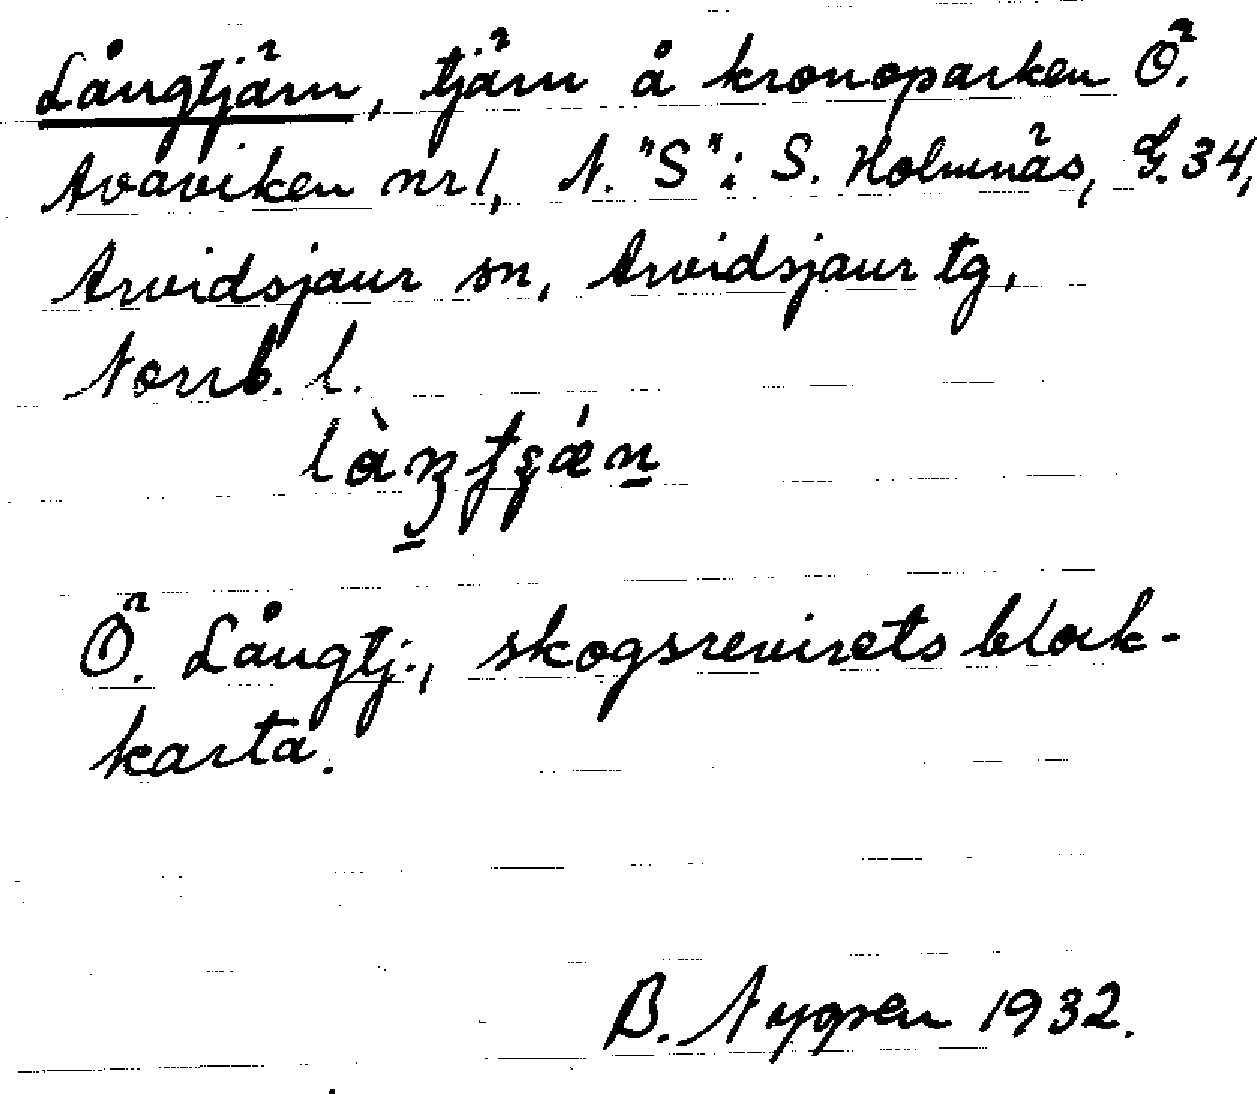 Långtjärn, tjärn å kronoparken Ö.
Avaviken nr 1, N. "S"; S. Holmnäs, G. 34,
Arvidsjaur sn, Arvidsjaur tg,
Norrb. l.
Ö. Långtj., skogsrevirets block-
karta.
B. 1932.